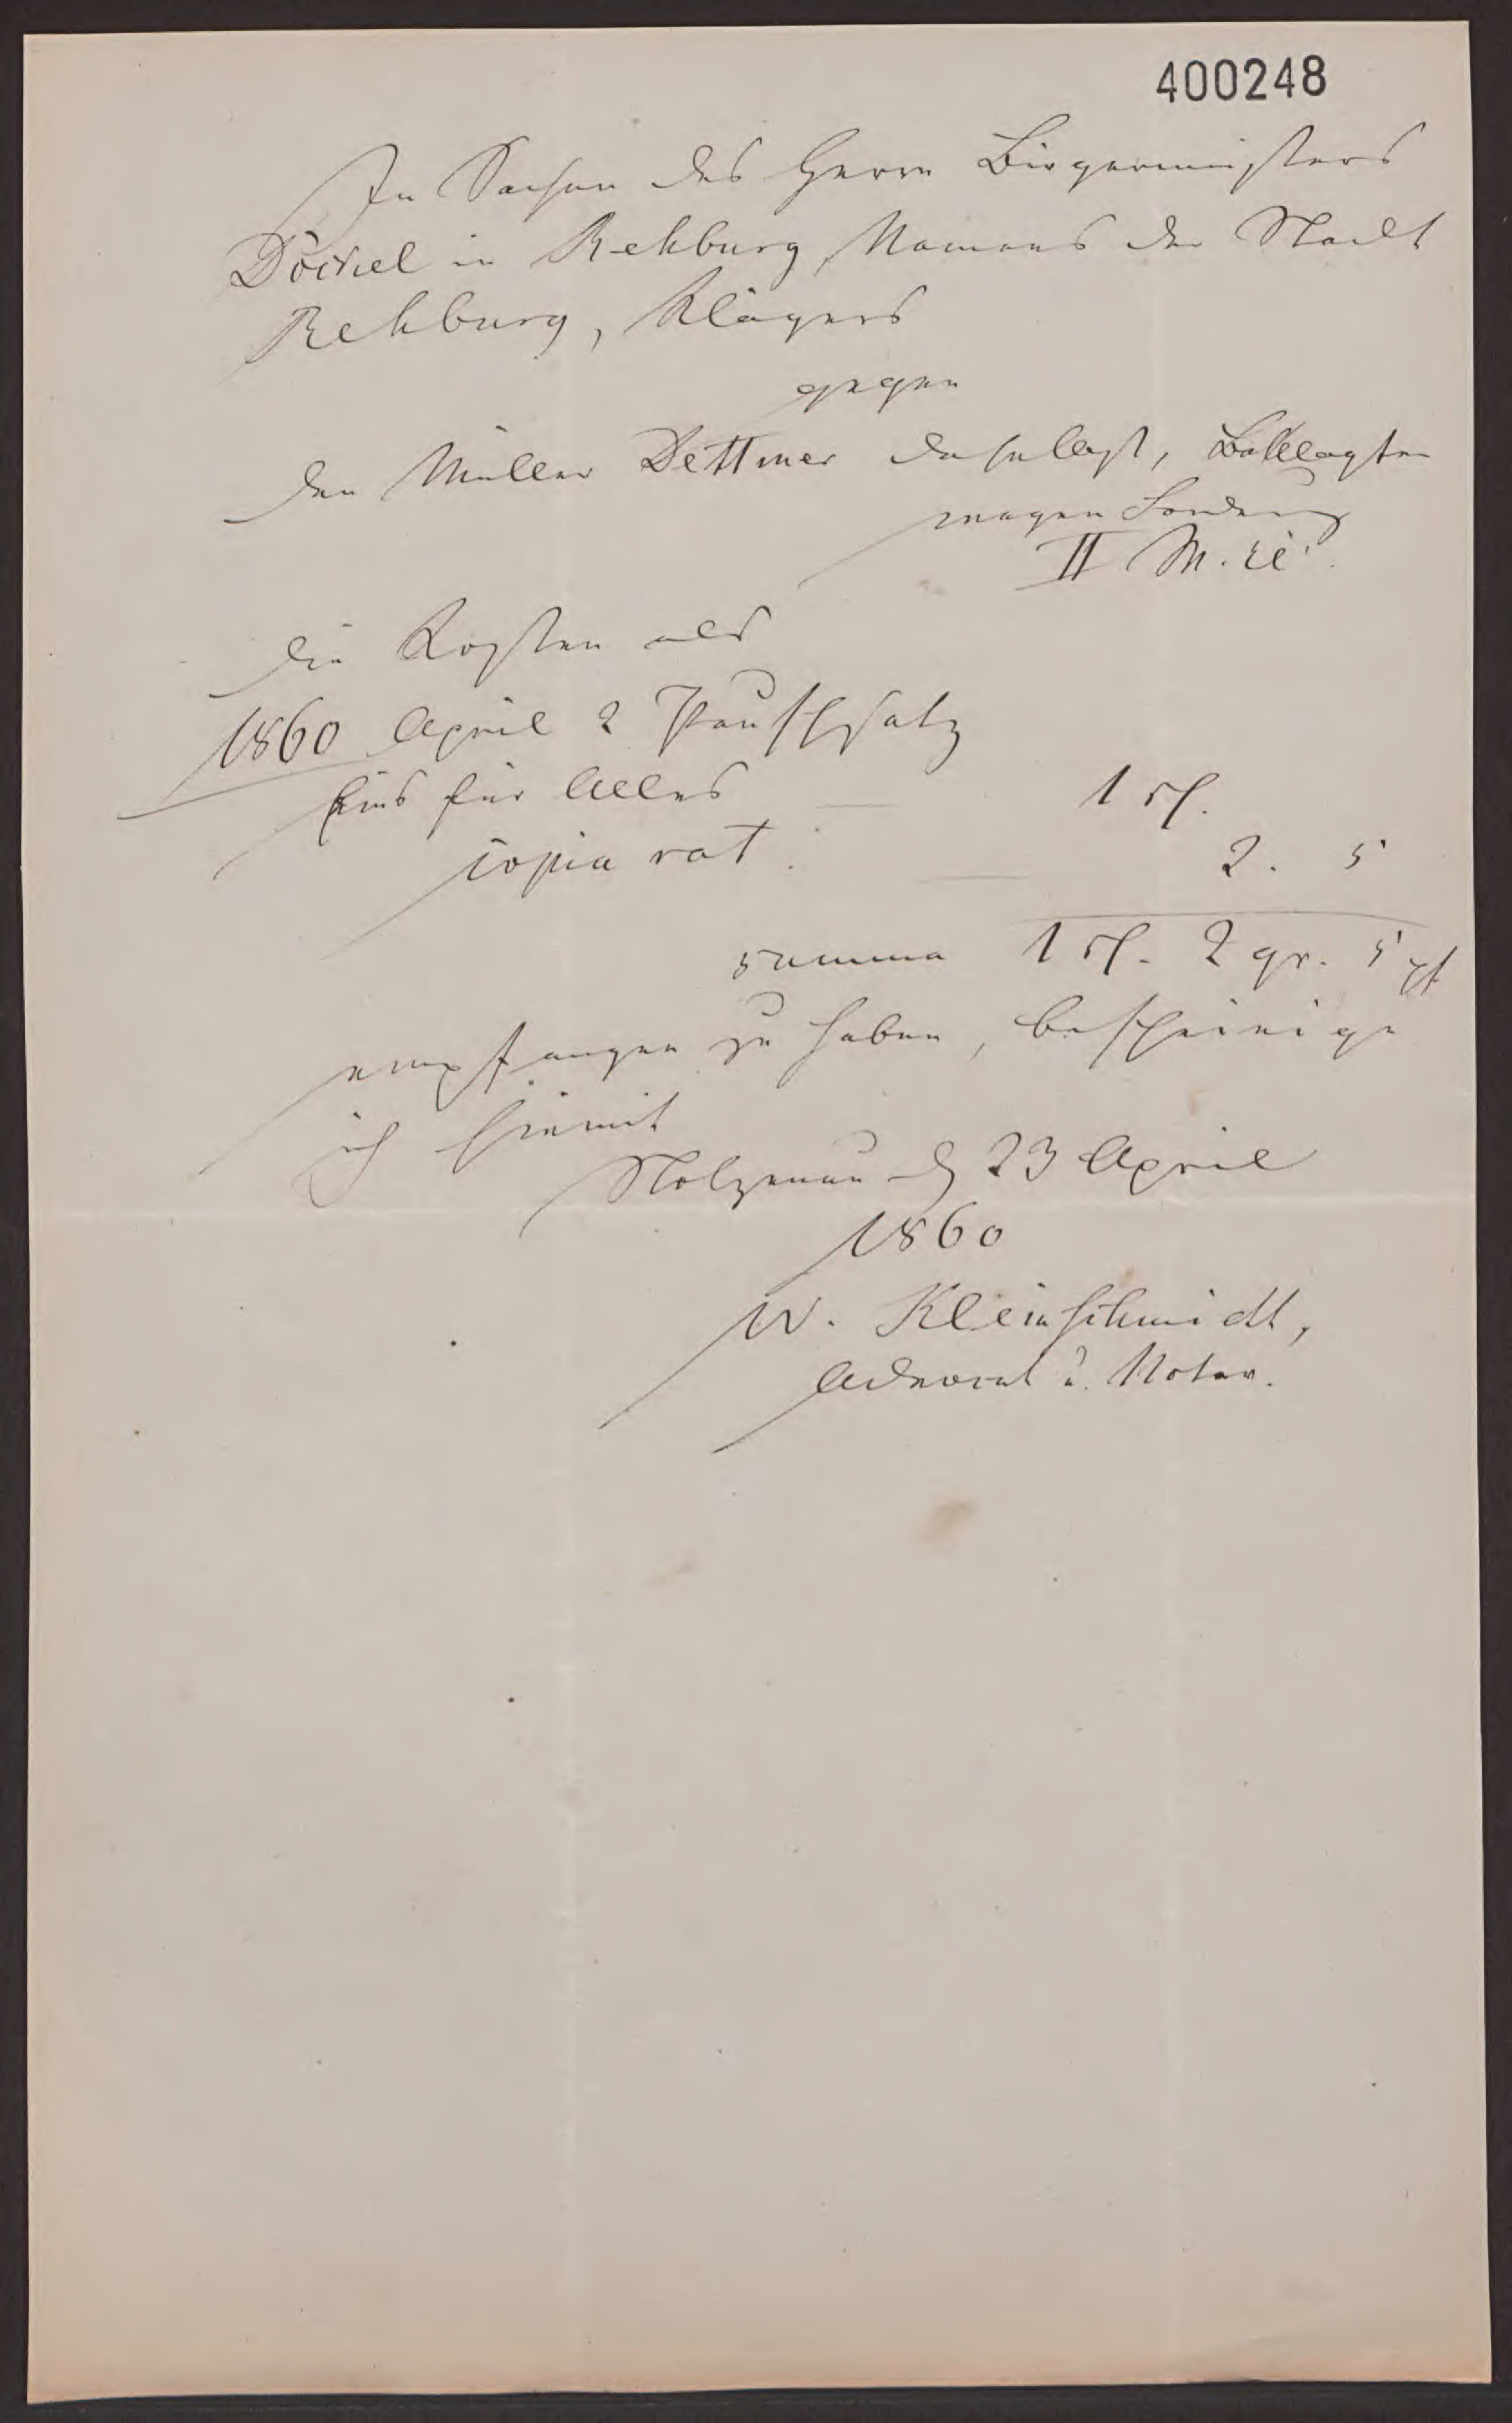 400248
In Sachen des Herrn Bürgermeisters
Döckel in Rehburg, Namens der Stadt
Rehburg, Klägers
gegen
den Müller Dettmer daselbst, Beklagten
wegen Forderung
II M. rc.
die Kosten als
1860 April 2 Pauschsatz
Eins für Alles — 1 rl.
copia rat. — 2. 5
summa 1 rl. 2 gr. 5 pf
empfangen zu haben, bescheinige
ich hiemit
Stolzenau d 23 April
1860
W. Kleinschmidt,
Advocat u. Notar.